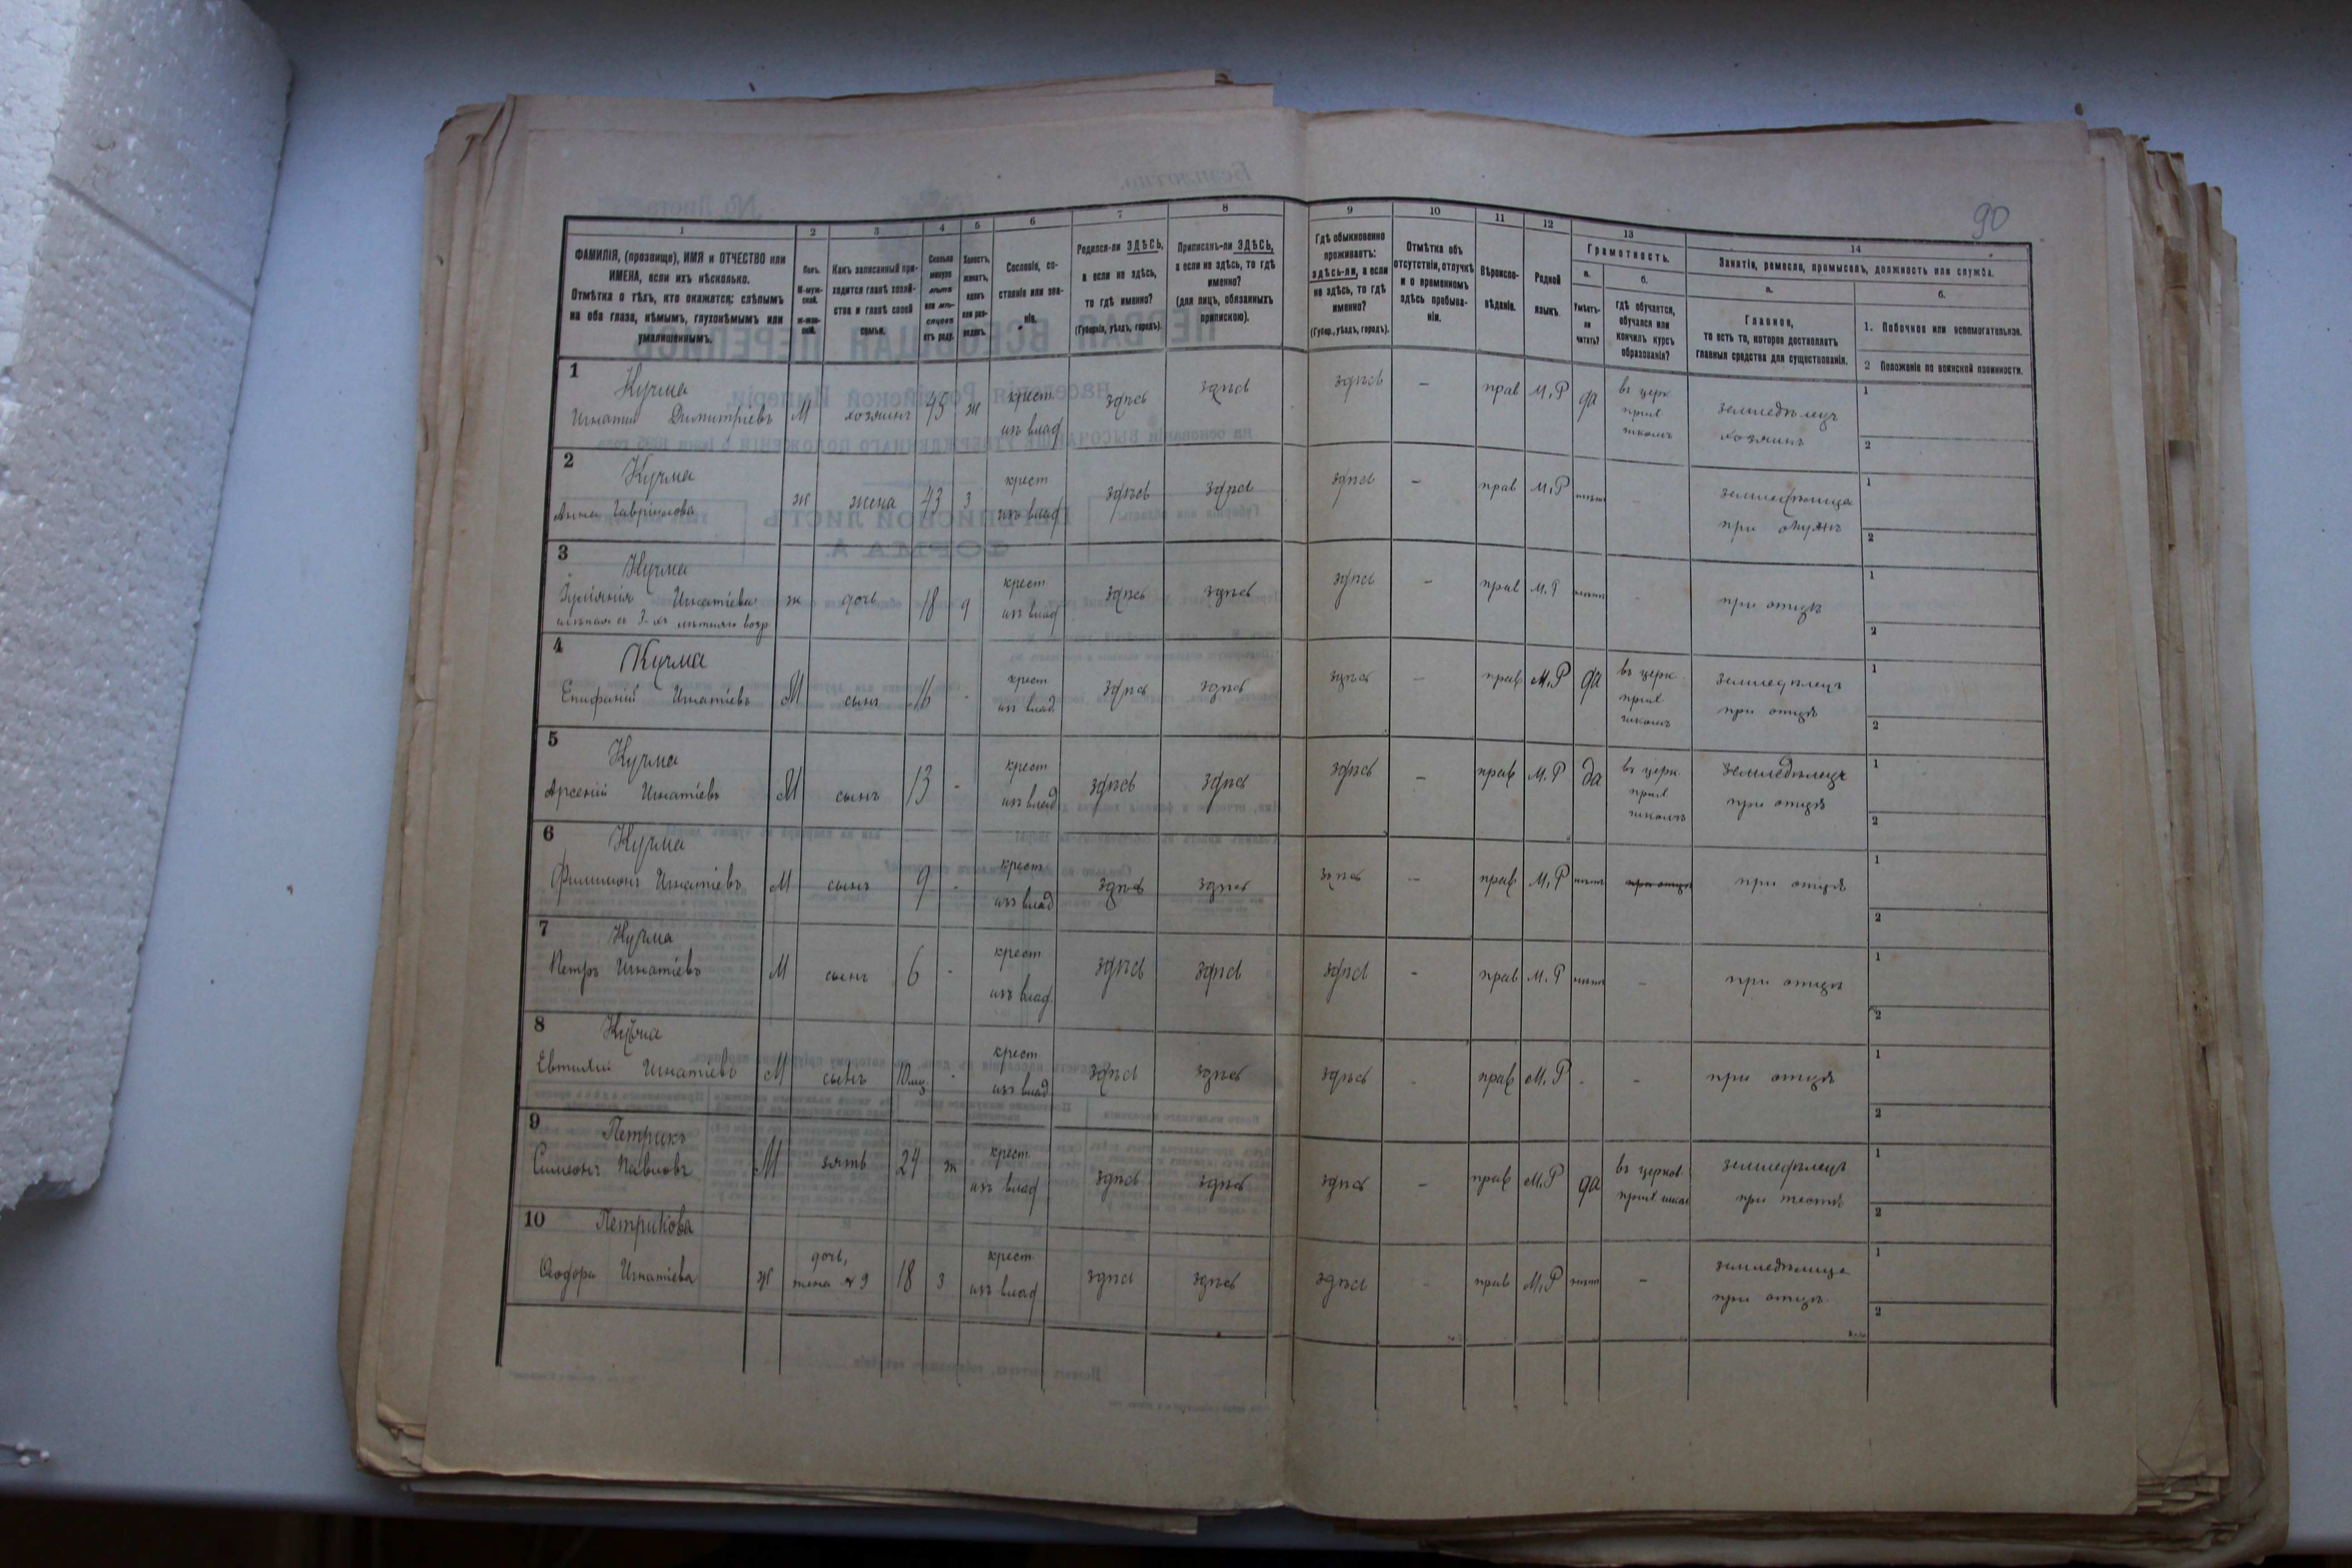 90
1 2 3 4 5 6 7 8 9 10 11 12 13 14
ФАМИЛІЯ, (прозвище), ИМЯ и ОТЧЕСТВО или
ИМЕНА, если ихъ нѣсколько.
Отмѣтка о тѣхъ, кто окажется: слѣпымъ
на оба глаза, нѣмымъ, глухонѣмымъ или
умалишеннымъ.
Полъ.
М-муж-
ской.
ж-жен-
скій.
Какъ записанный при-
ходится главѣ хозяй-
ства и главѣ своей
семьи.
Сколько
минуло
лѣтъ
или мѣ-
сяцевъ
отъ роду.
Холостъ,
женатъ,
вдовъ
или раз-
веденъ.
Сословіе, со-
стояніе или зва-
ніе.
Родился-ли ЗДѢСЬ,
а если не здѣсь,
то гдѣ именно?
(Губернія, уѣздъ, городъ).
Приписанъ-ли ЗДѢСЬ,
а если не здѣсь, то гдѣ
именно?
(для лицъ, обязанныхъ
припискою).
Гдѣ обыкновенно
проживаетъ:
здѣсь-ли, а если
не здѣсь, то гдѣ
именно?
(Губер., уѣздъ, городъ).
Отмѣтка объ
отсутствіи, отлучкѣ
и о временномъ
здѣсь пребыва-
ніи.
Вѣроиспо-
вѣданіе.
Родной
языкъ.
Грамотность.
а.
Умѣетъ-
ли
читать?
б.
гдѣ обучается,
обучался или
кончилъ курсъ
образованія?
Занятіе, ремесло, промыселъ, должность или служба.
а.
Главное,
то есть то, которое доставляетъ
главныя средства для существованія.
б.
1. Побочное или вспомогательное.
2 Положеніе по воинской повинности.
1 Кучма
Игнатий Димитріевъ М хозяинъ 45 ж крест. изъ влад здѣсь здѣсь здѣсь - прав М.Р да въ церк прих школѣ земледѣлецъ хозяинъ 1 2
2 Кучма
Анна Гаврилова ж жена 43 з крест изъ влад здѣсь здѣсь здѣсь - прав М.Р земледѣлица при мужѣ 1 2
3 Кучма
Игнатіева
ж дочь 18 д крест. изъ влад здѣсь здѣсь здѣсь - прав М.Р - при отцѣ 1 2
4 Кучма
Епифаній Игнатіевъ М сынъ 16 - крест изъ влад здѣсь здѣсь здѣсь - прав М.Р да въ церк. прих школѣ земледѣлецъ при отцѣ 1 2
5 Кучма
Арсеній Игнатіевъ М сынъ 13 - крест изъ влад здѣсь здѣсь здѣсь - прав М.Р да въ церк. прих школѣ земледѣлецъ при отцѣ 1 2
6 Кучма
Филимонъ Игнатіевъ М сынъ 9 - крест изъ влад здѣсь здѣсь здѣсь - прав М.Р при отцѣ при отцѣ 1 2
7 Кучма
Петръ Игнатіевъ М сынъ 6 - крест изъ влад. здѣсь здѣсь здѣсь - прав М.Р - при отцѣ 1 2
8 Кучма
Евтихій Игнатіевъ М сынъ 10 мѣ - крест изъ влад здѣсь здѣсь здѣсь - прав М.Р - - при отцѣ 1 2
9 Петрикъ
Симеонъ Павловъ М зять 24 ж крест. изъ влад здѣсь здѣсь здѣсь - прав М.Р да въ церков. прих школ земледѣлецъ при тестѣ 1 2
10 Петрикова
Ѳеодора Игнатіева ж дочь, жена № 9 18 з крест. изъ влад здѣсь здѣсь здѣсь - прав М.Р - земледѣлица при отцѣ 1 2